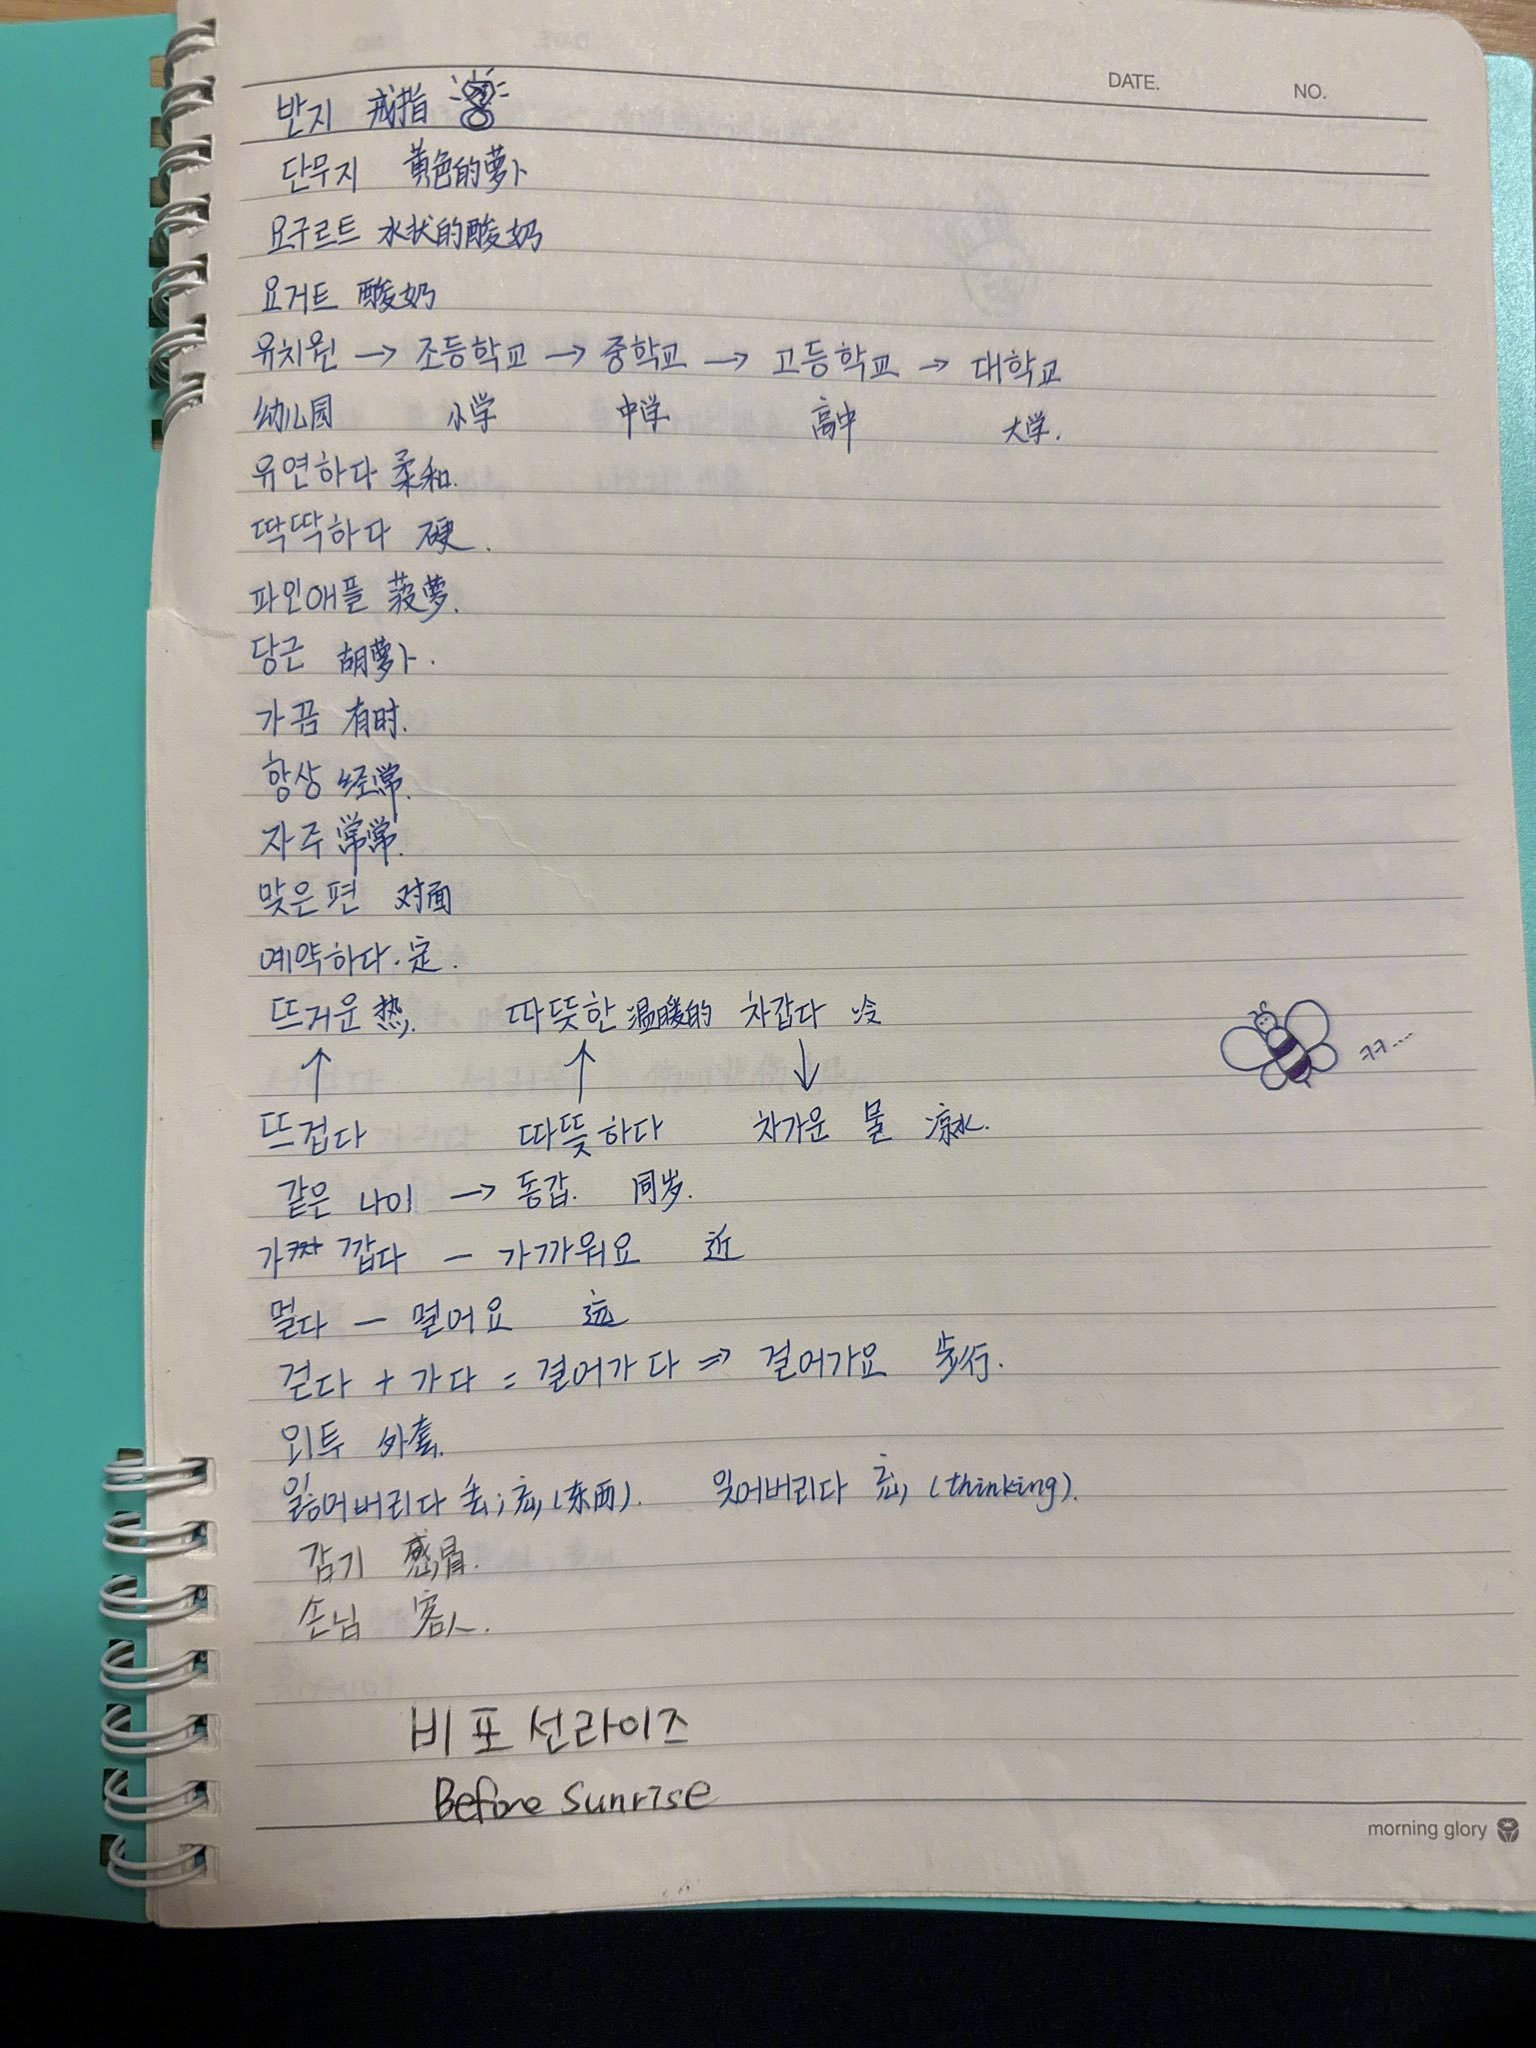 DATE. NO.
반지 戒指
단무지 黄色的萝卜
요구르트 水状的酸奶
요거트 酸奶
유치원 → 조등학교 → 중학교 → 고등학교 → 대학교
幼儿园 小学 中学 高中 大学.
유연하다 柔和.
딱딱하다 硬.
파인애플 菠萝.
당근 胡萝卜.
가끔 有时.
항상 经常.
자주 常常.
맞은편 对面
예약하다. 定.
뜨거운 热. 따뜻한 温暖的 차갑다 冷
ㅋㅋ....
↑ ↑ ↓
뜨겁다 따뜻하다 차가운 물 凉水.
같은 나이 → 동갑. 同岁.
가깝다 — 가까워요 近
멀다 — 멀어요 远
걷다 + 가다 = 걸어가다 => 걸어가요 步行.
외투 外套.
잃어버리다 丢; 忘 (东西). 잊어버리다 忘 (thinking).
감기 感冒.
손님 客人.
비포 선라이즈
Before Sunrise
morning glory